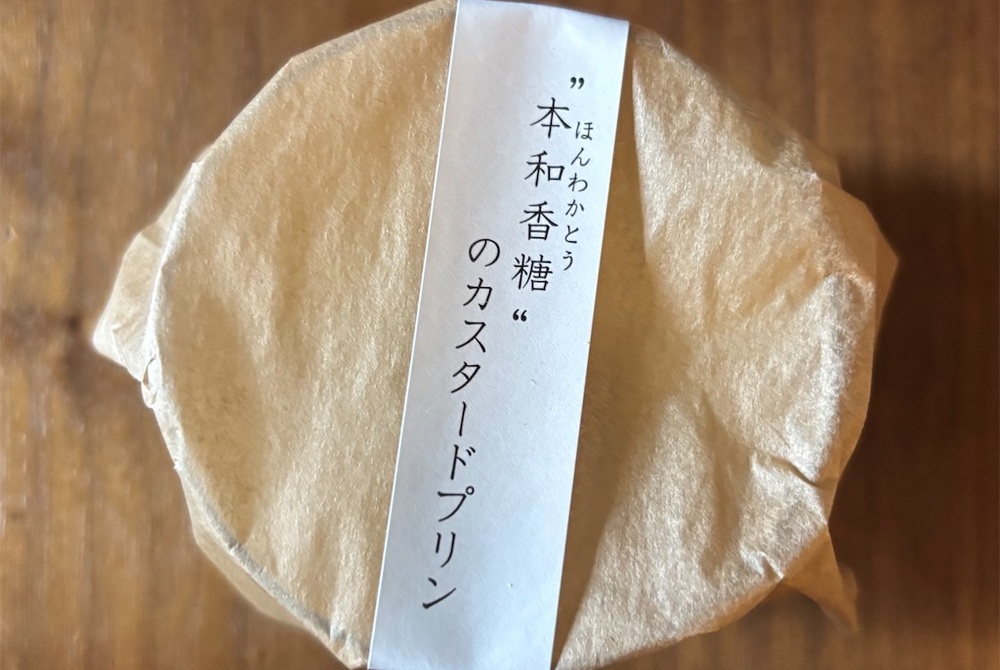 ”本和香糖“
ほんわかとう
のカスタードプリン